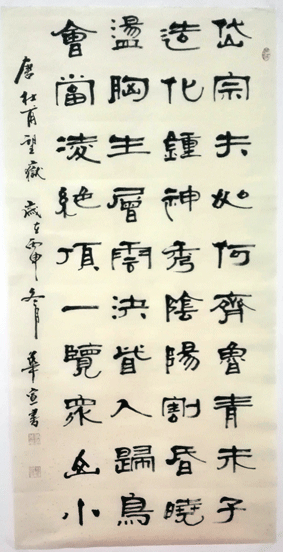 岱宗夫如何齊魯青未了
造化鍾神秀陰陽割昏曉
盪胸生層雲決眥入歸鳥
會當凌絕頂一覽眾山小
唐杜甫望嶽 歲在丙申冬月 華宣書